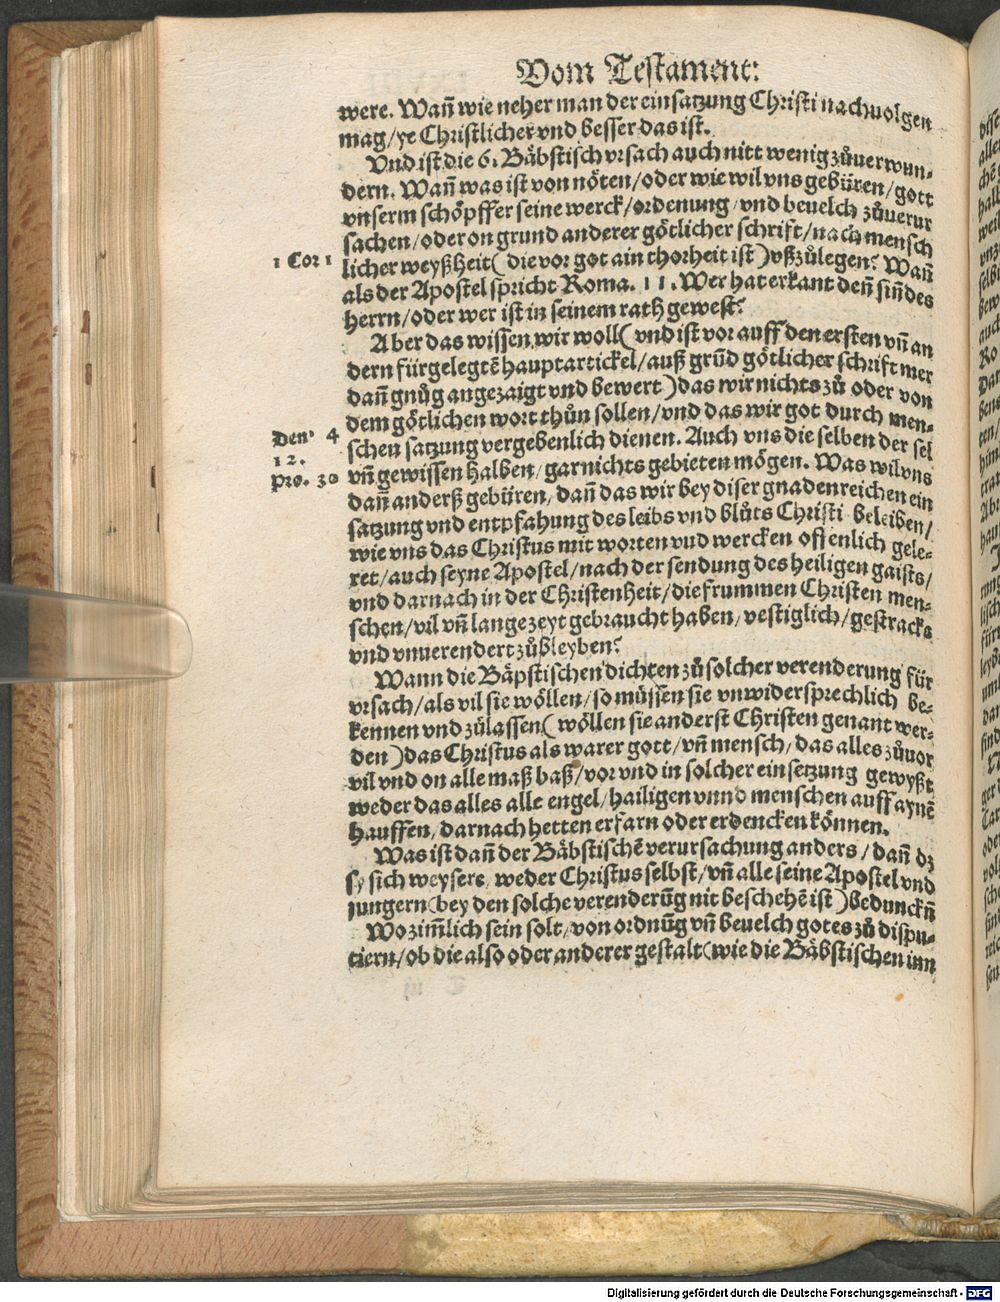 Vom Testament:
were. Wañ wie neher man der einsatzung Christi nachuolgen
mag/ye Christlicher vnd besser das ist.
Vnd ist die 6. Bäbstisch vrsach auch nitt wenig zůuerwun⸗
dern. Wañ was ist von nöten/oder wie wil vns gebüren/gott
vnserm schöpffer seine werck/ordenung/vnd beuelch zůuerur
sachen/oder on grund anderer götlicher schrift/nach mensch
1 Cor 1
licher weyßheit(die vor got ain thorheit ist)vßzůlegen? Wañ
als der Apostel spricht Roma. 11. Wer hat erkant deñ siñ des
herrn/oder wer ist in seinem rath gewest?
Aber das wissen wir woll(vnd ist vor auff den ersten vñ an
dern fürgelegtē hauptartickel/auß grūd götlicher schrift mer
dañ gnůg angezaigt vnd bewert)das wir nichts zů oder von
dem götlichen wort thůn sollen/vnd das wir got durch men⸗
Deu' 4
schen satzung vergebenlich dienen. Auch vns die selben der sel
12.
vñ gewissen halben/garnichts gebieten mögen. Was wil vns
Pro. 30
dañ anderß gebüren/dañ das wir bey diser gnadenreichen ein
satzung vnd entpfahung des leibs vnd blůts Christi beleiben/
wie vns das Christus mit worten vnd wercken offenlich gele⸗
ret/auch seyne Apostel/nach der sendung des heiligen gaists/
vnd darnach in der Christenheit/die frummen Christen men⸗
schen/vil vñ lange zeyt gebraucht haben/vestiglich/gestracks
vnd vnuerendert zůbleyben?
Wann die Bäpstischen dichten zů solcher verenderung für
vrsach/als vil sie wöllen/so müssen sie vnwidersprechlich be⸗
kennen vnd zůlassen(wöllen sie anderst Christen genant wer⸗
den)das Christus als warer gott/vñ mensch/das alles zůuor
vil vnd on alle maß baß/vor vnd in solcher einsetzung gewyßt
weder das alles alle engel/hailigen vnnd menschen auff aynē
hauffen/darnach hetten erfarn oder erdencken können.
Was ist dañ der Bäbstischē verursachung anders/dañ dz
sy sich weysere/weder Christus selbst/vñ alle seine Apostel vnd
jungern(bey den solche verenderūg nit beschehē ist)bedunckñ
Wo zim̃lich sein solt/von ordnūg vñ beuelch gotes zů dispu⸗
tiern/ob die also oder anderer gestalt(wie die Bäbstischen inn
Digitalisierung gefördert durch die Deutsche Forschungsgemeinschaft - DFG